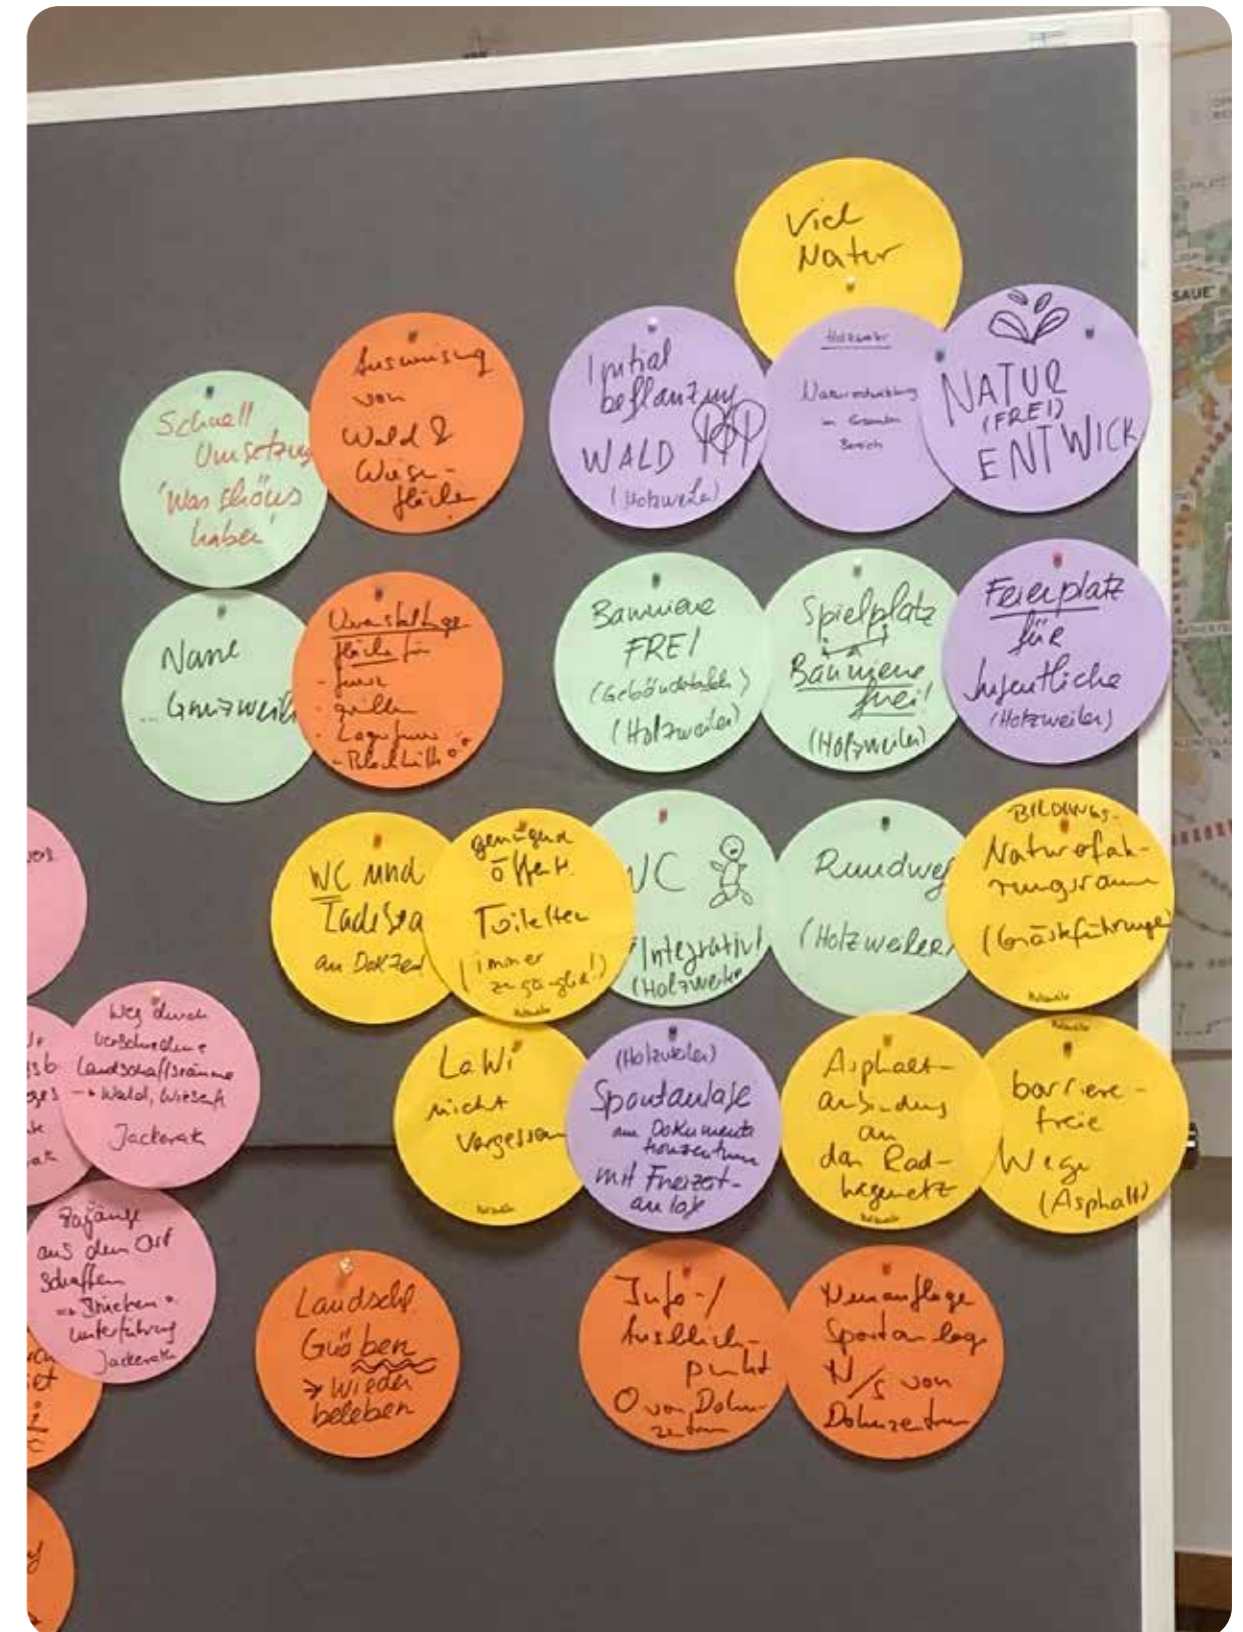 Viel
Natur
Schnell
Umsetzung
"Was schönes
haben"
Ausweisung
von
Wald &
Wiesen-
fläche
Initial
bepflanzung
WALD
(Holzweiler)
Naturentwicklung
im Gesamten
Bereich
NATUR
(FREI)
ENTWICK
Name
... Ganzweiler
Veranstaltungs
fläche für
- grillen
- Lagerfeuer
Barriere
FREI
(Holzweiler)
Spielplatz
Barriere
frei!
(Holzweiler)
Feierplatz
für
Jugentliche
(Holzweiler)
WC und
an DokZent
genügend
öffent.
Toiletten
(immer
zugänglich!)
WC
Integrativ!
(Holzweiler
Rundweg
(Holzweiler)
BILDUNGS-
Naturerfah-
rungsraum
Weg durch
verschiedene
Landschaftsräume
→ Wald, Wiese
Jackerath
LaWi
nicht
vergessen
(Holzweiler)
Sportanlage
am Dokumente
konzentrum
mit Freizeit-
anlage
Asphalt-
anbindung
an
das Rad-
wegenetz
barriere-
freie
Wege
(Asphalt)
Zugänge
aus dem Ort
schaffen
=> Brücken
Unterführung
Jackerath
Landschl.
Gräben
→ Wieder
beleben
Info-/
Ausblick-
punkt
O von Doku-
zentrum
Neuauflage
Sportanlage
N/S von
Dokuzentrum